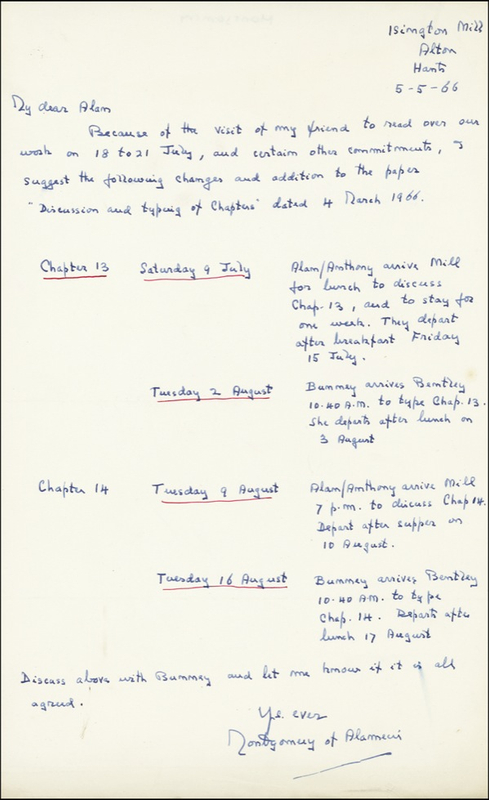 Isington Mill
Alton
Hants
5-5-66
My dear Alan
Because of the visit of my friend to read over our
work on 18 to 21 July, and certain other commitments, I
suggest the following changes and addition to the paper
"Discussion and typing of Chapters" dated 4 March 1966.
Chapter 13
Saturday 9 July
Alan/Anthony arrive Mill
for lunch to discuss
Chap. 13, and to stay for
one week. They depart
after breakfast Friday
15 July.
Tuesday 2 August
Bummey arrives Bentley
10.40 A.M. to type Chap. 13.
She departs after lunch on
3 August
Chapter 14
Tuesday 9 August
Alan/Anthony arrive Mill
7 p.m. to discuss Chap 14.
Depart after supper on
10 August.
Tuesday 16 August
Bummey arrives Bentley
10.40 A.M. to type
Chap. 14. Departs after
lunch 17 August
Discuss above with Bummey and let me know if it is all
agreed.
Yrs. ever
Montgomery of Alamein